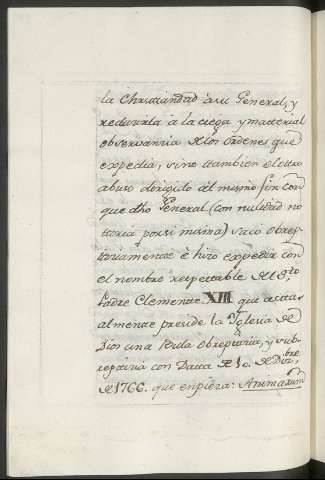 la Christiandad à su General, y
reducirla à la ciega y material
observancia de los órdenes que
expedia, sino tambien el otro
abuso dirigido al mismo fin con
que dho General (con nulidad no
toria por si misma) sacó obrep-
ticiamente è hizo expedir con
el nombre respectable del Sto
Padre Clemente XIII que actu
almente preside la Iglesia de
Dios una Bula obrepticia, y sub-
repticia con Data de 10. de Dizbre
de 1766. que empieza: Animarum